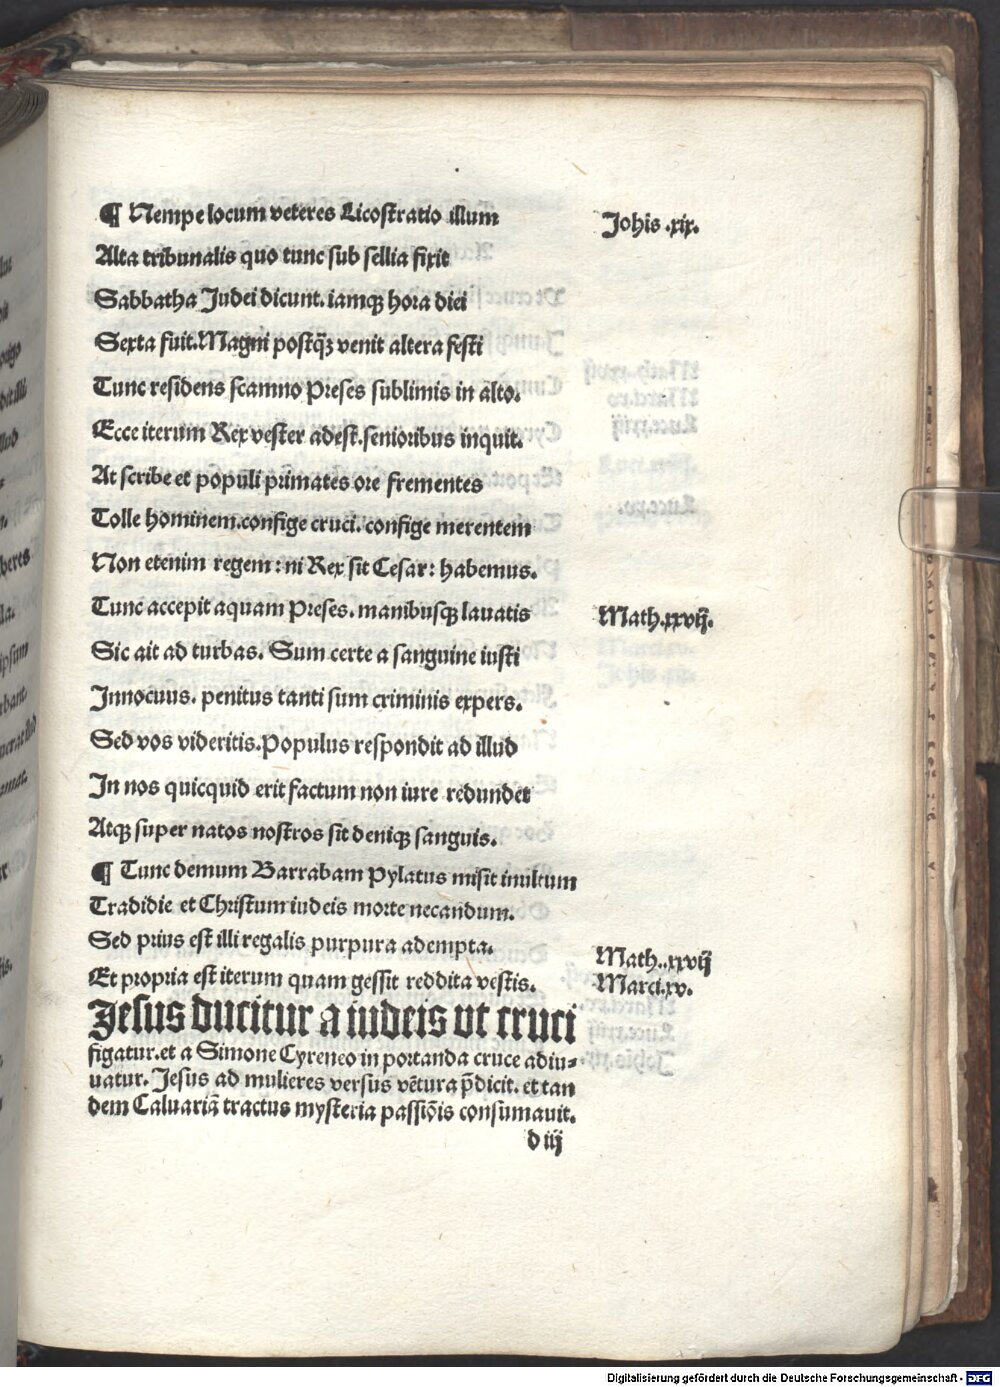 ¶ Nempe locum veteres Licostratio illum
Johis .xix.
Alta tribunalis quo tunc sub sellia fixit
Sabbatha Judei dicunt. iamqꝫ hora diei
Sexta fuit. Magni postqͣꝫ venit altera festi
Tunc residens scamno Preses sublimis in alto.
Ecce iterum Rex vester adest. senioribus inquit.
At scribe et populi primates ore frementes
Tolle hominem. confige cruci. confige merentem
Non etenim regem: ni Rex sit Cesar: habemus.
Tunc accepit aquam Preses. manibusqꝫ lauatis
Math. xxvij.
Sic ait ad turbas. Sum certe a sanguine iusti
Innocuus. penitus tanti sum criminis expers.
Sed vos videritis. Populus respondit ad illud
In nos quicquid erit factum non iure redundet
Atqꝫ super natos nostros sit deniqꝫ sanguis.
¶ Tunc demum Barrabam Pylatus misit inultum
Tradidit et Christum iudeis morte necandum.
Sed prius est illi regalis purpura adempta.
Math. .xxvij
Et propria est iterum quam gessit reddita vestis.
Marci. xv.
Jesus ducitur a iudeis vt cruci
figatur. et a Simone Cyreneo in portanda cruce adiu-
uatur. Jesus ad mulieres versus vētura p̄dicit. et tan
dem Caluariā tractus mysteria passiōis consumauit.
d iij
Digitalisierung gefördert durch die Deutsche Forschungsgemeinschaft - DFG